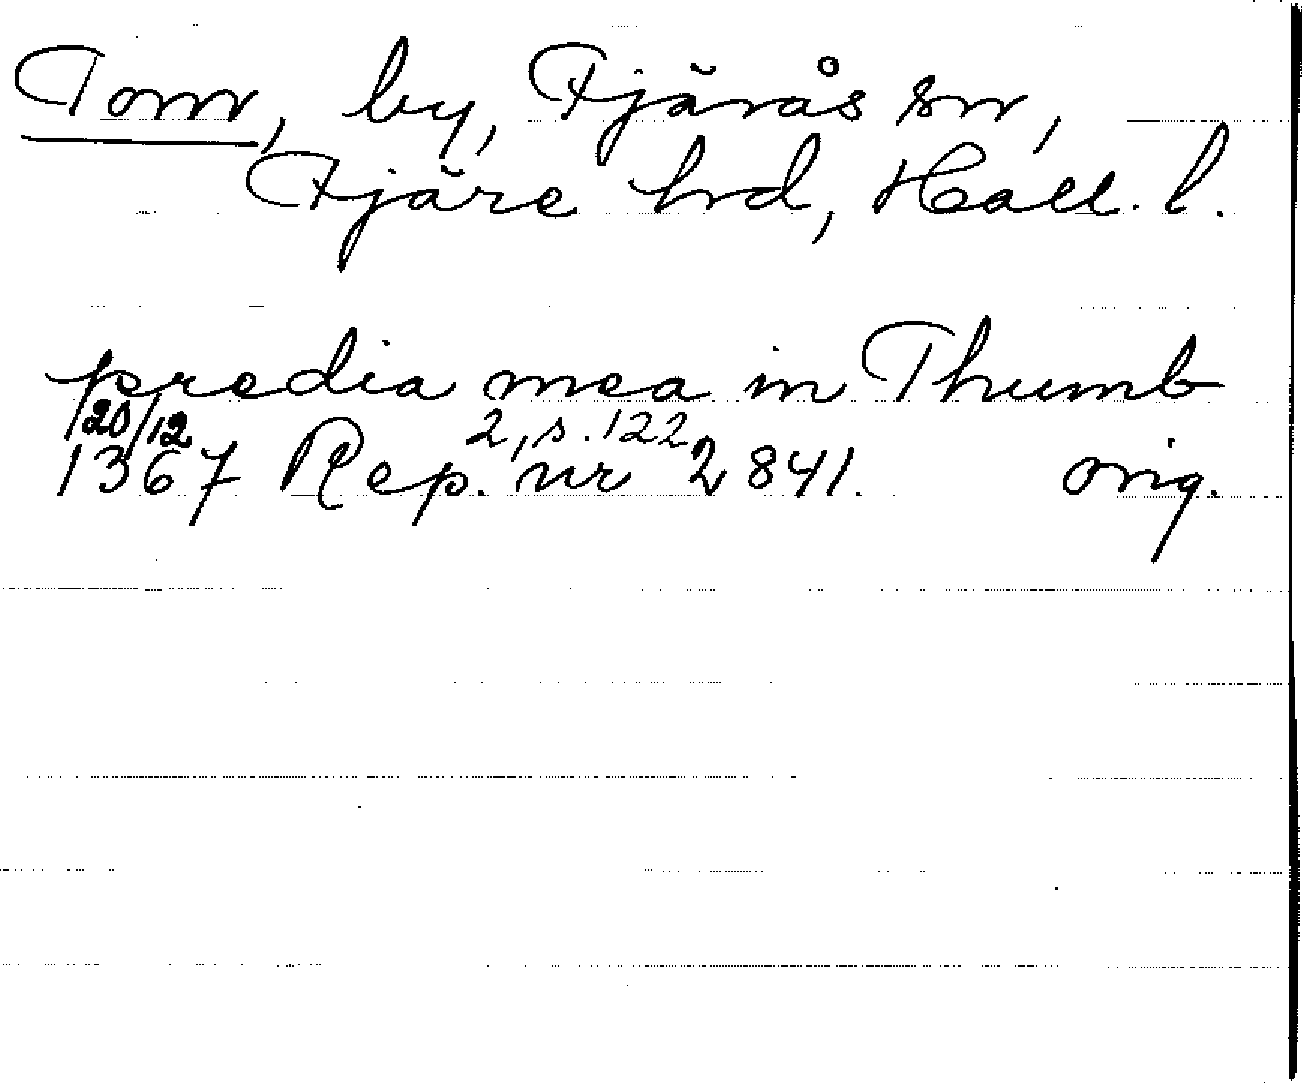 Tom, by, Fjärås sn,
Fjäre hd, Hall. l.
predia mea in Thumb
20/12
2, s. 122
1367 Rep. nr 2841. orig.